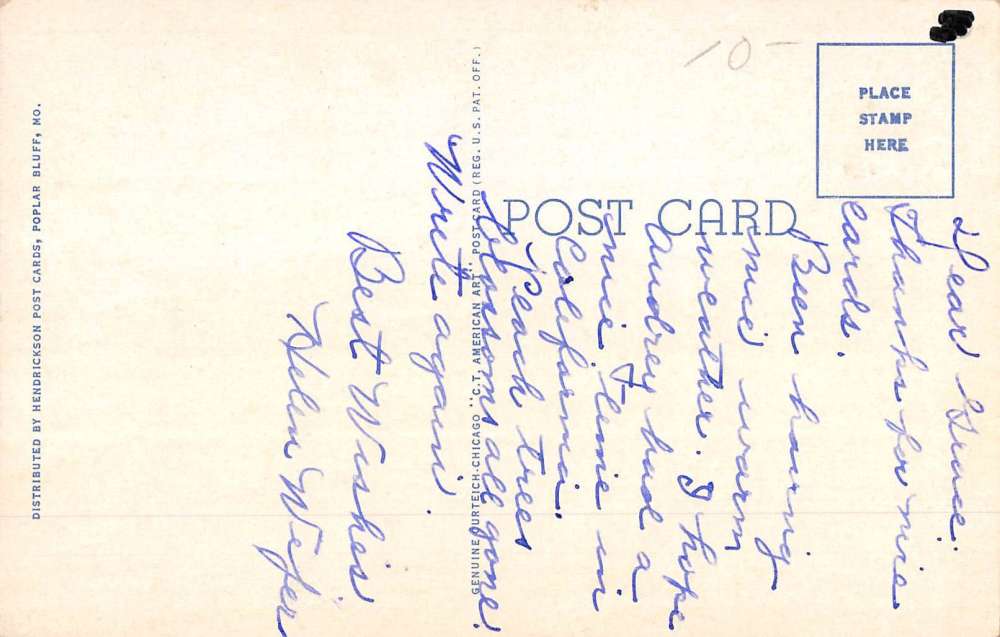 DISTRIBUTED BY HENDRICKSON POST CARDS, POPLAR BLUFF, MO.
GENUINE CURTEICH-CHICAGO "C.T. AMERICAN ART" POST CARD (REG. U.S. PAT. OFF.)
POST CARD
PLACE
STAMP
HERE
10-
Dear Grace:
Thanks for nice
cards.
Been having
nice warm
weather. I hope
Audrey had a
nice time in
California.
Peach trees
blossoms all gone.
Write again.
Best Wishes
Helen Wefer